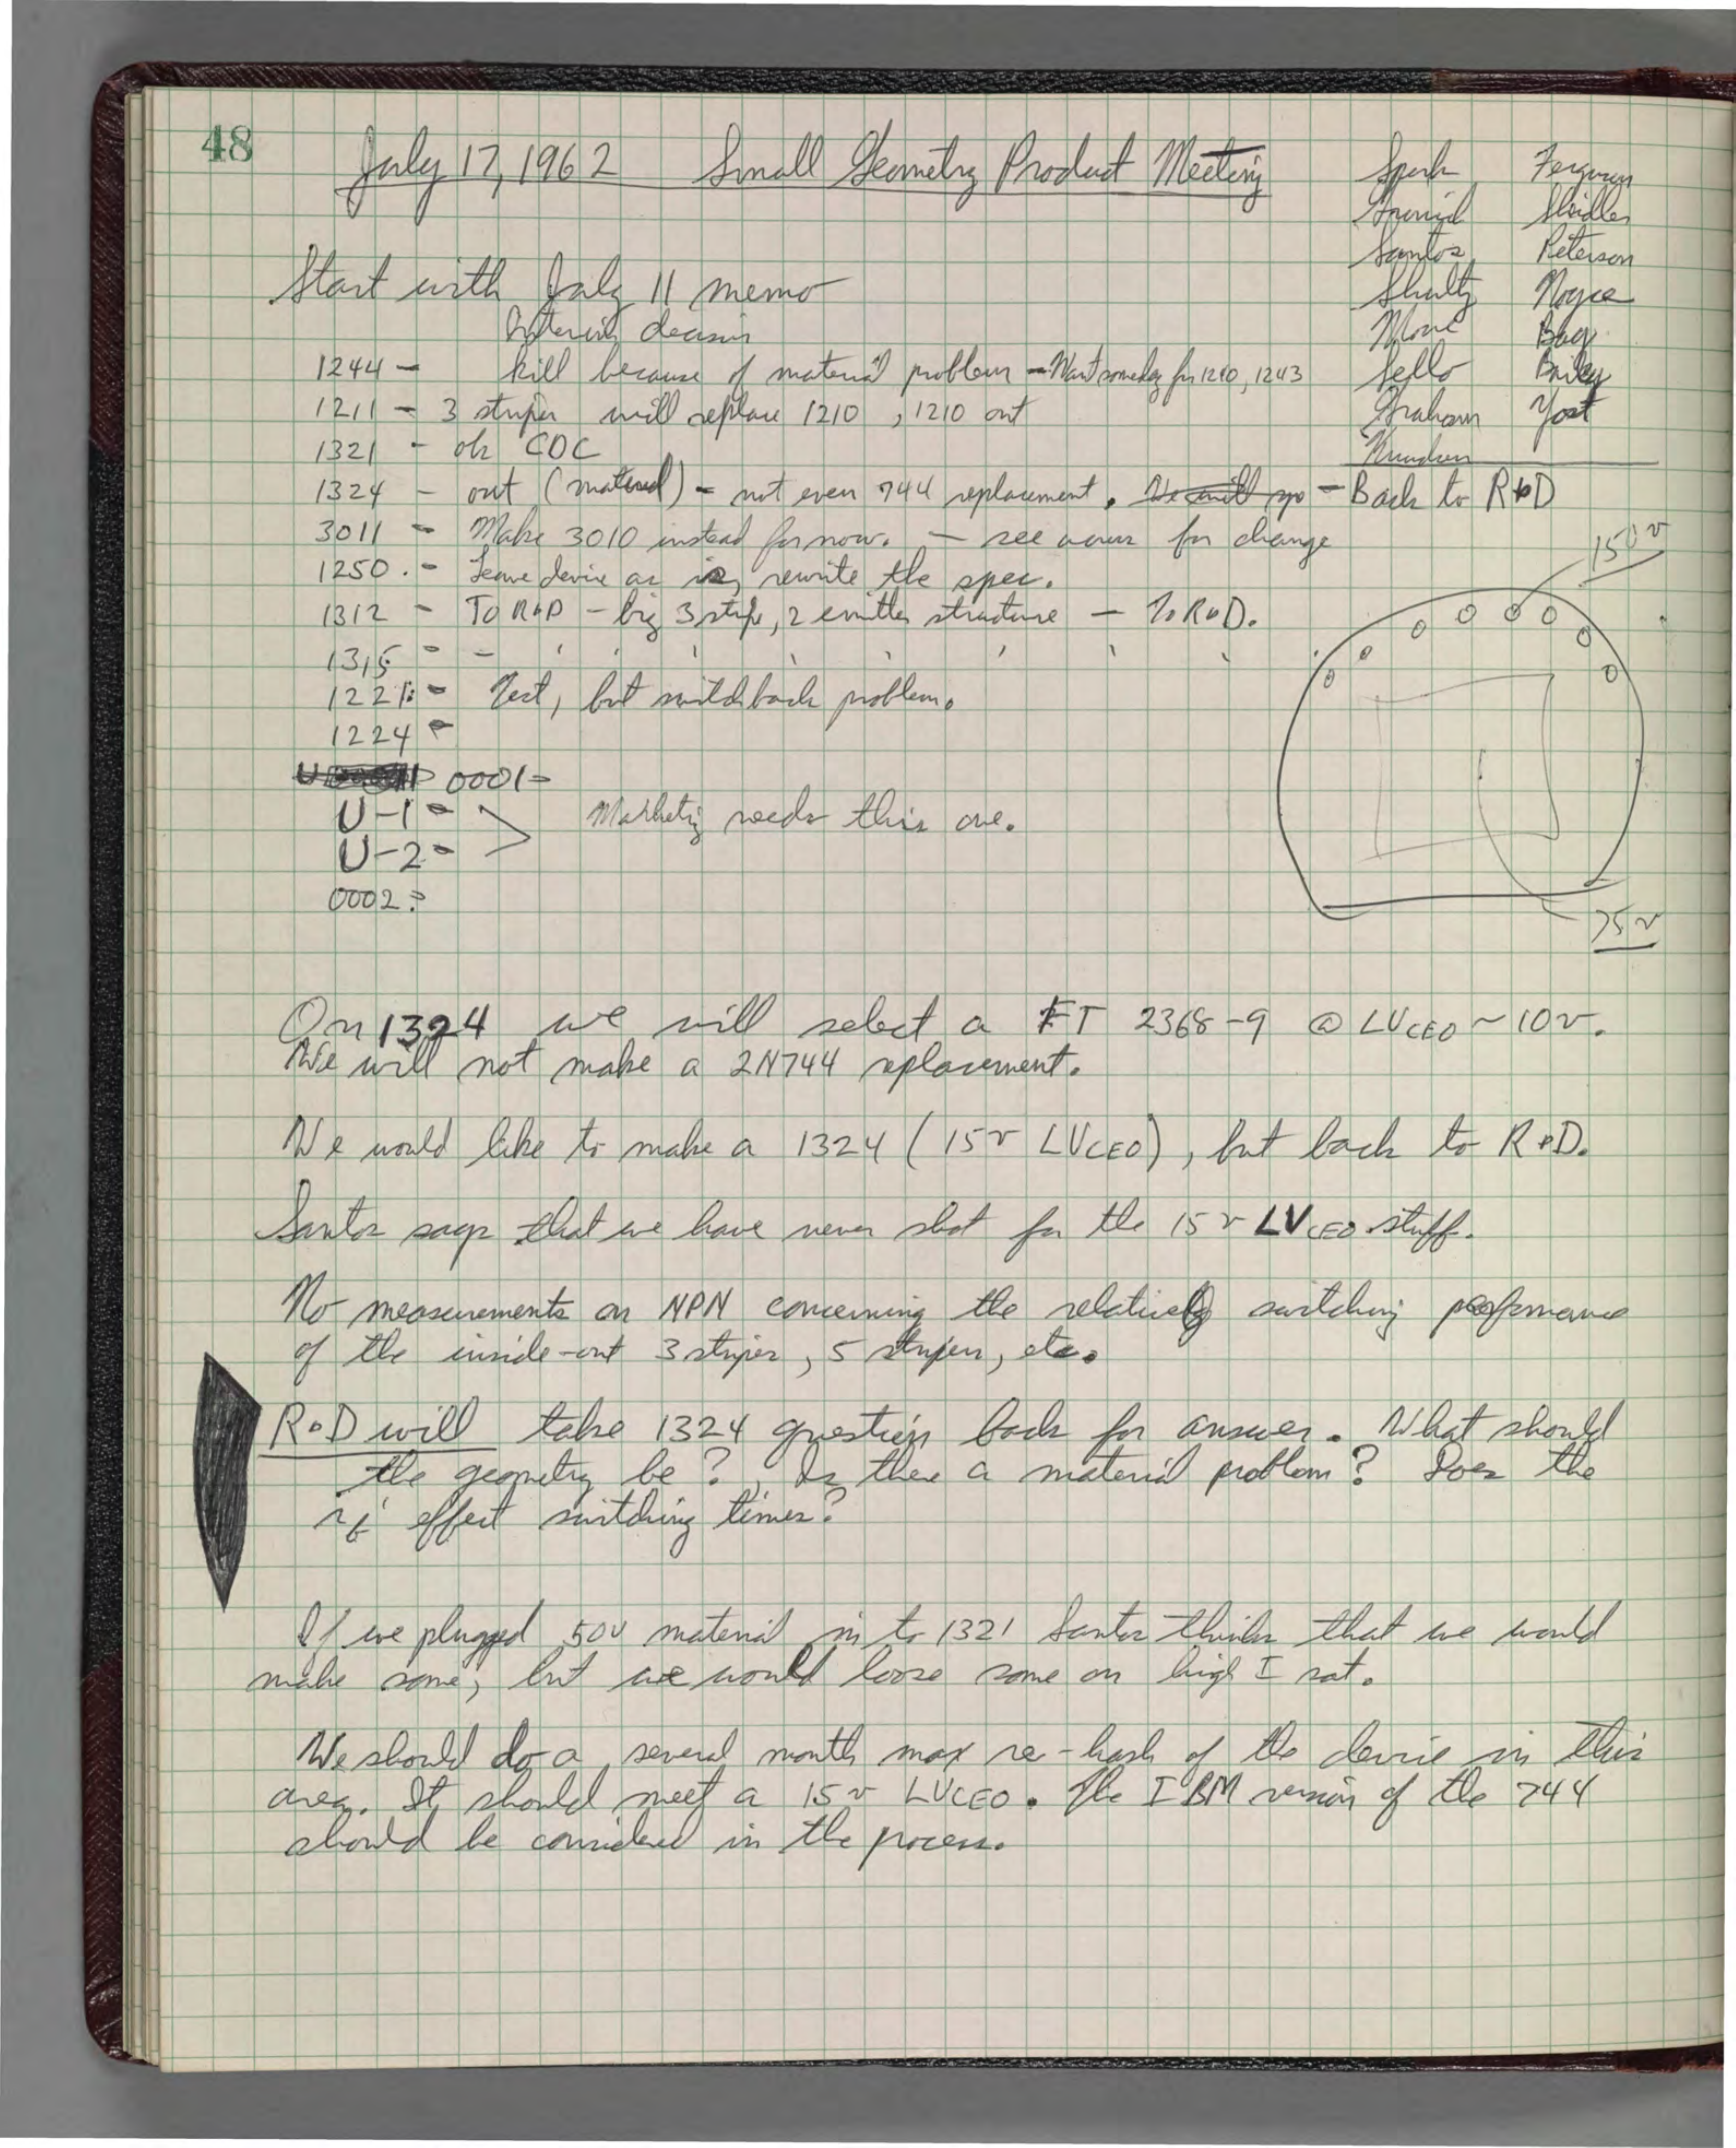 48
July 17, 1962 Small Geometry Product Meeting
Spork Ferguson
Grinich Sheidler
Santos Peterson
Shultz Noyce
Moore Bay
Sello Bailey
Graham Yost
Knudsen
Start with July 11 memo
Interim decision
1244 - kill because of material problem - Want someday for 1210, 1243
1211 - 3 striper will replace 1210, 1210 out
1321 - ok CDC
1324 - out (material) - not even 744 replacement. We will go - Back to R+D
3011 - Make 3010 instead for now. - see for change
1250. - Leave device as is, rewrite the spec.
1312 - To R+D - big 3 stripe, 2 emitter structure - To R+D.
1315 - - ' ' ' ' ' ' '
1221: - Test, but switchback problem.
1224 -
0001 -
U-1 -
U-2 -
> Marketig needs this one.
0002 ?
150 v
75 v
On 1324 we will select a FT 2368-9 @ LVCEO ~ 10v.
We will not make a 2N744 replacement.
We would like to make a 1324 (15v LVCEO), but back to R+D.
Santos says that we have never shot for the 15v LVCEO stuff.
No measurements on NPN concerning the relative switching performance
of the inside-out 3 striper, 5 striper, etc.
R+D will take 1324 question back for answer. What should
the geometry be?, Is there a material problem? Does the
rb' effect switching times?
If we plugged 50v material in to 1321 Santos thinks that we would
make some, but we would loose some on high I sat.
We should do a several month max re-hash of the device in this
area. It should meet a 15v LVCEO. The IBM version of the 744
should be considered in the process.